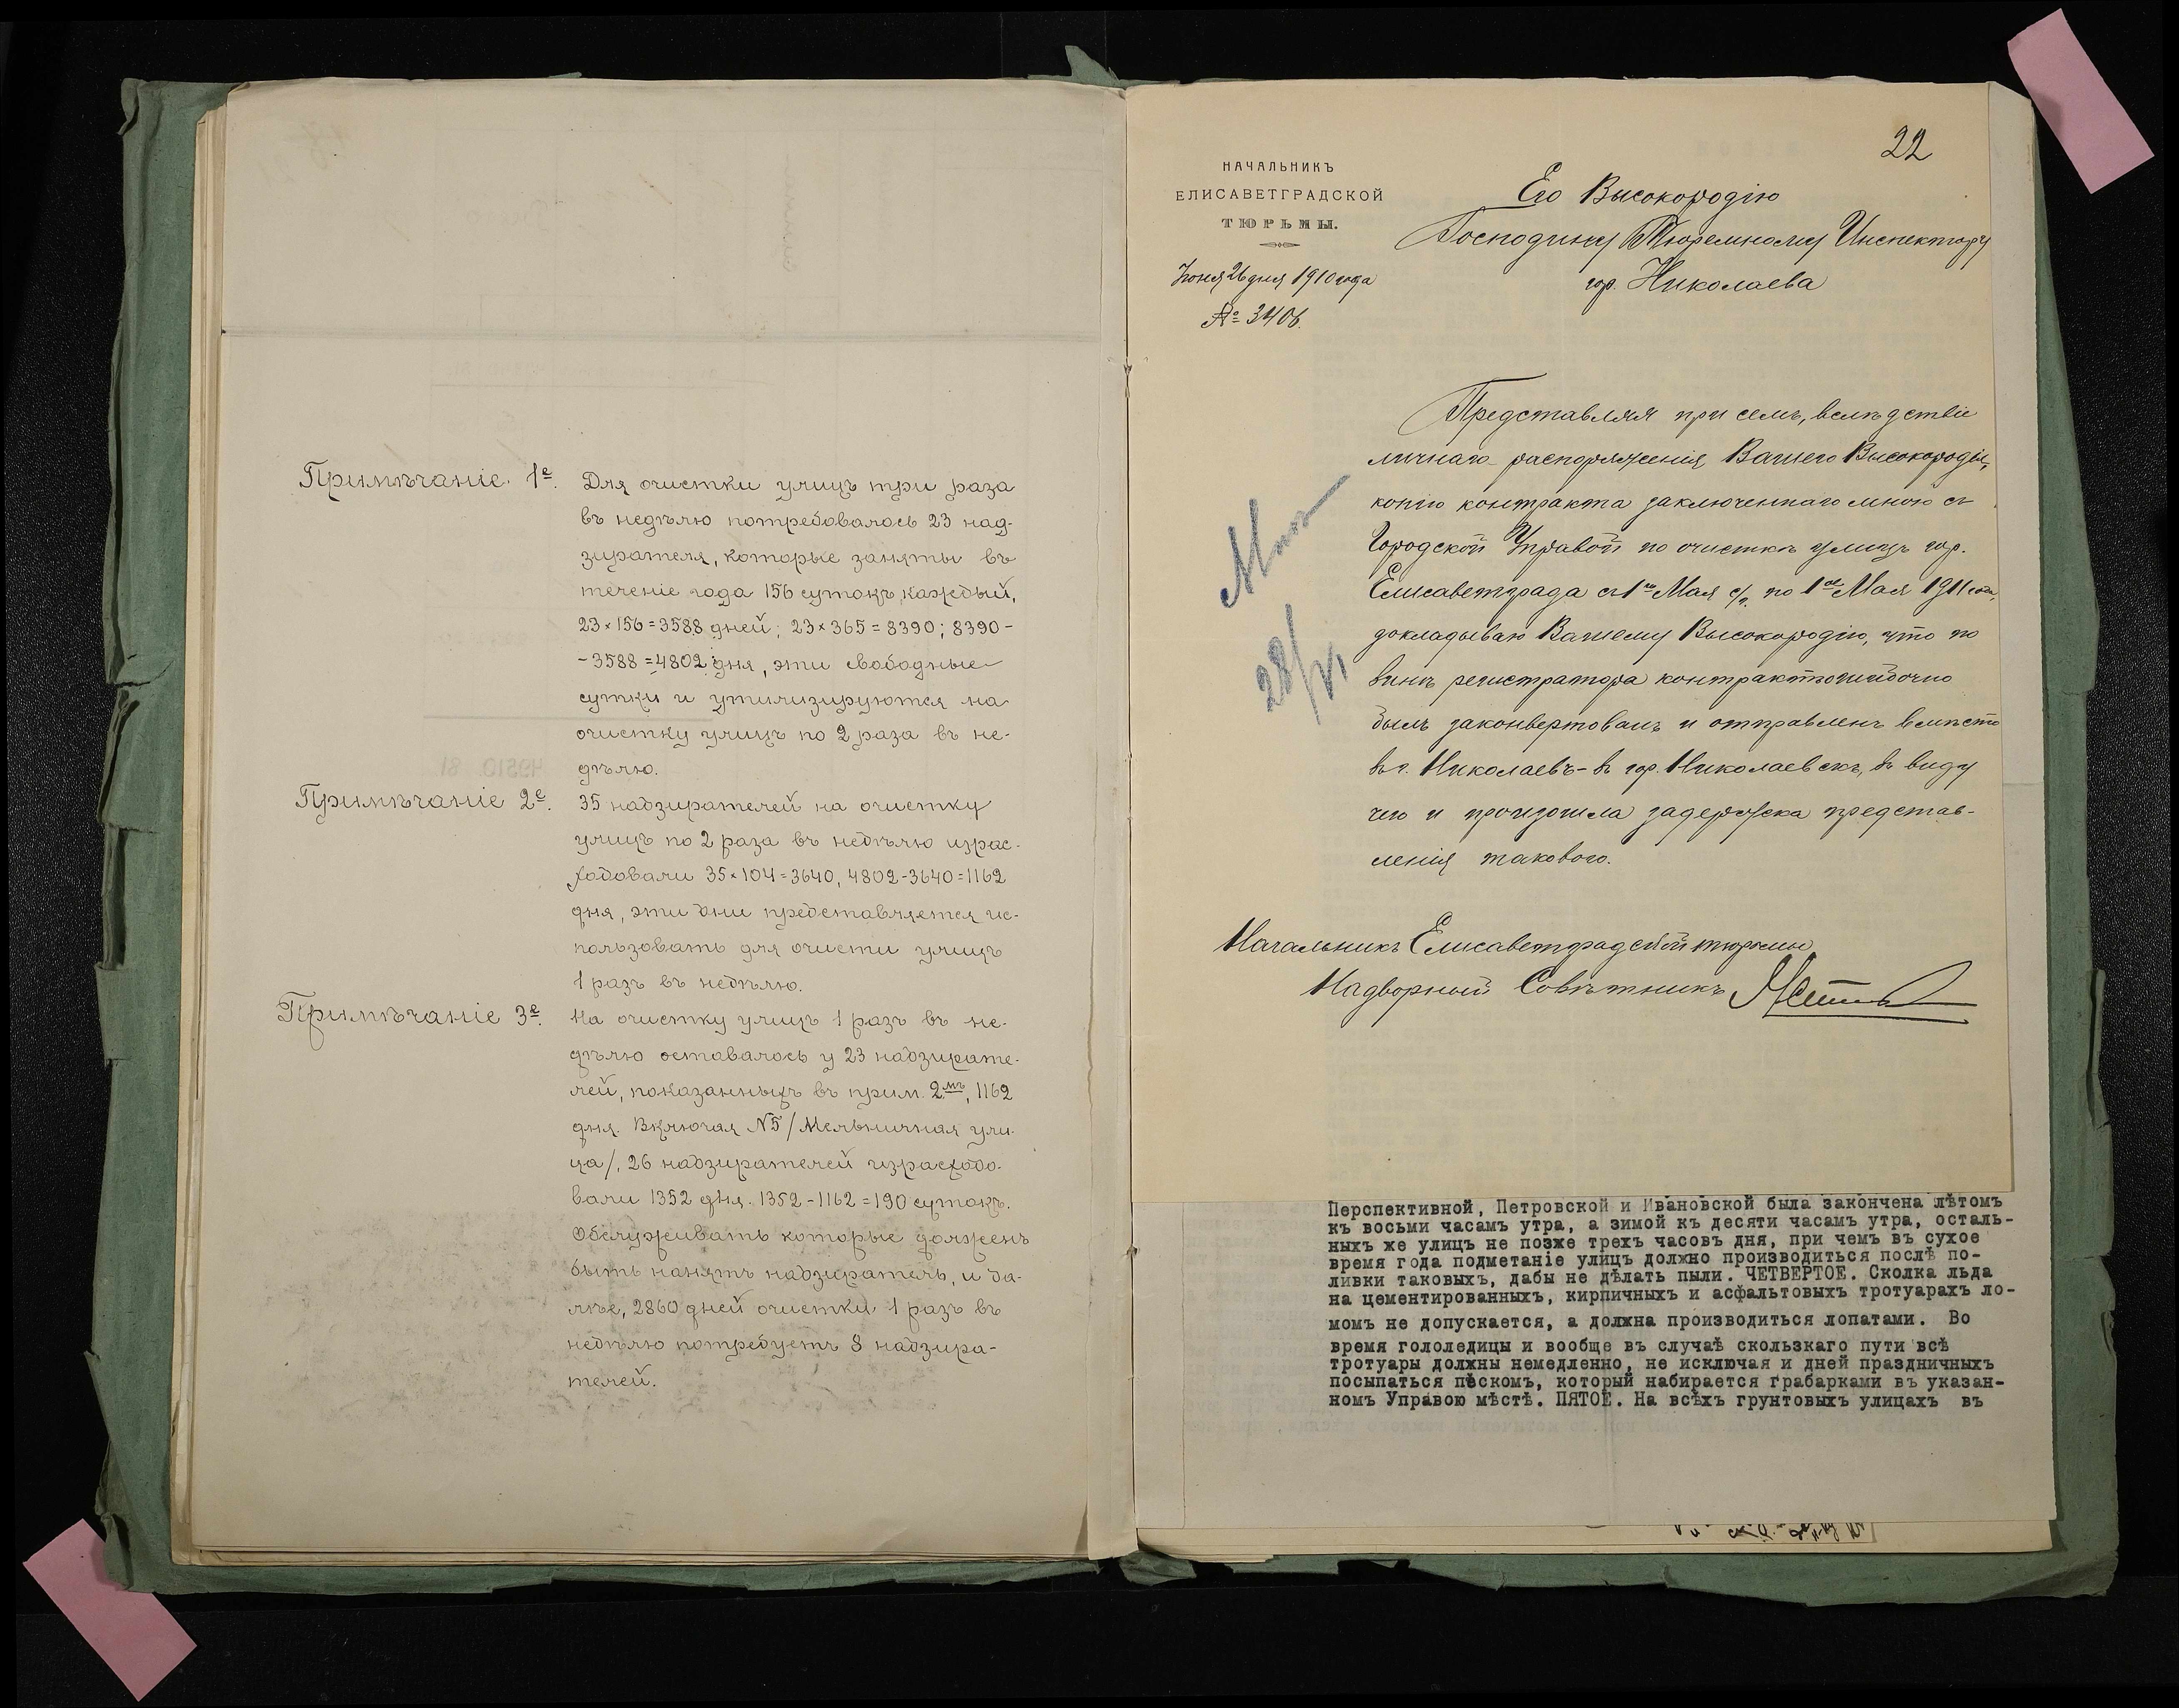 Примѣчаніе 1е.
Для очистки улицъ три раза
въ недѣлю потребовалось 23 над-
зирателя, которые заняты въ
теченіе года 156 сутокъ каждый,
23×156=3588 дней; 23×365=8390; 8390-
-3588=4802 дня, эти свободные
сутки и утилизируются на
очистку улицъ по 2 раза въ не-
дѣлю.
Примѣчаніе 2е.
35 надзирателей на очистку
улицъ по 2 раза въ недѣлю израс-
ходовали 35×104=3640, 4802-3640=1162
дня, эти дни представляется ис-
пользовать для очисти улицъ
1 разъ въ недѣлю.
Примѣчаніе 3е.
На очистку улицъ 1 разъ въ не-
дѣлю оставалось у 23 надзирате-
лей, показанныхъ въ прим. 2мъ, 1162
дня. Включая №5 /Мельничная ули-
ца/, 26 надзирателей израсходо-
вали 1352 дня. 1352-1162=190 сутокъ.
Обслуживать которые долженъ
быть нанятъ надзиратель, и да-
лѣе, 2860 дней очистки 1 разъ въ
недѣлю потребуетъ 8 надзира-
телей.
22
НАЧАЛЬНИКЪ
ЕЛИСАВЕТГРАДСКОЙ
ТЮРЬМЫ.
Іюня 26 дня 1910 года
№ 3406.
Его Высокородію
Господину Тюремному Инспектору
гор. Николаева
Представляя при семъ, вслѣдствіе
личнаго распоряженія Вашего Высокородія,
копію контракта заключеннаго мною съ
Городской Управой по очисткѣ улицъ гор.
Елисаветграда съ 1го Мая с/г. по 1ое Мая 1911 года,
докладываю Вашему Высокородію, что по
винѣ регистратора контрактъ ошибочно
былъ законвертованъ и отправленъ вмѣсто
въ г. Николаевъ - въ гор. Николаевскъ, въ виду
чего и произошла задержка представ-
ленія такового.
28/VI
Начальникъ Елисаветградской тюрьмы
Надворный Совѣтникъ
Перспективной, Петровской и Ивановской была закончена лѣтомъ
къ восьми часамъ утра, а зимой къ десяти часамъ утра, осталь-
ныхъ же улицъ не позже трехъ часовъ дня, при чемъ въ сухое
время года подметаніе улицъ должно производиться послѣ по-
ливки таковыхъ, дабы не дѣлать пыли. ЧЕТВЕРТОЕ. Сколка льда
на цементированныхъ, кирпичныхъ и асфальтовыхъ тротуарахъ ло-
момъ не допускается, а должна производиться лопатами. Во
время гололедицы и вообще въ случаѣ скользкаго пути всѣ
тротуары должны немедленно, не исключая и дней праздничныхъ
посыпаться пѣскомъ, который набирается грабарками въ указан-
номъ Управою мѣстѣ. ПЯТОЕ. На всѣхъ грунтовыхъ улицахъ въ